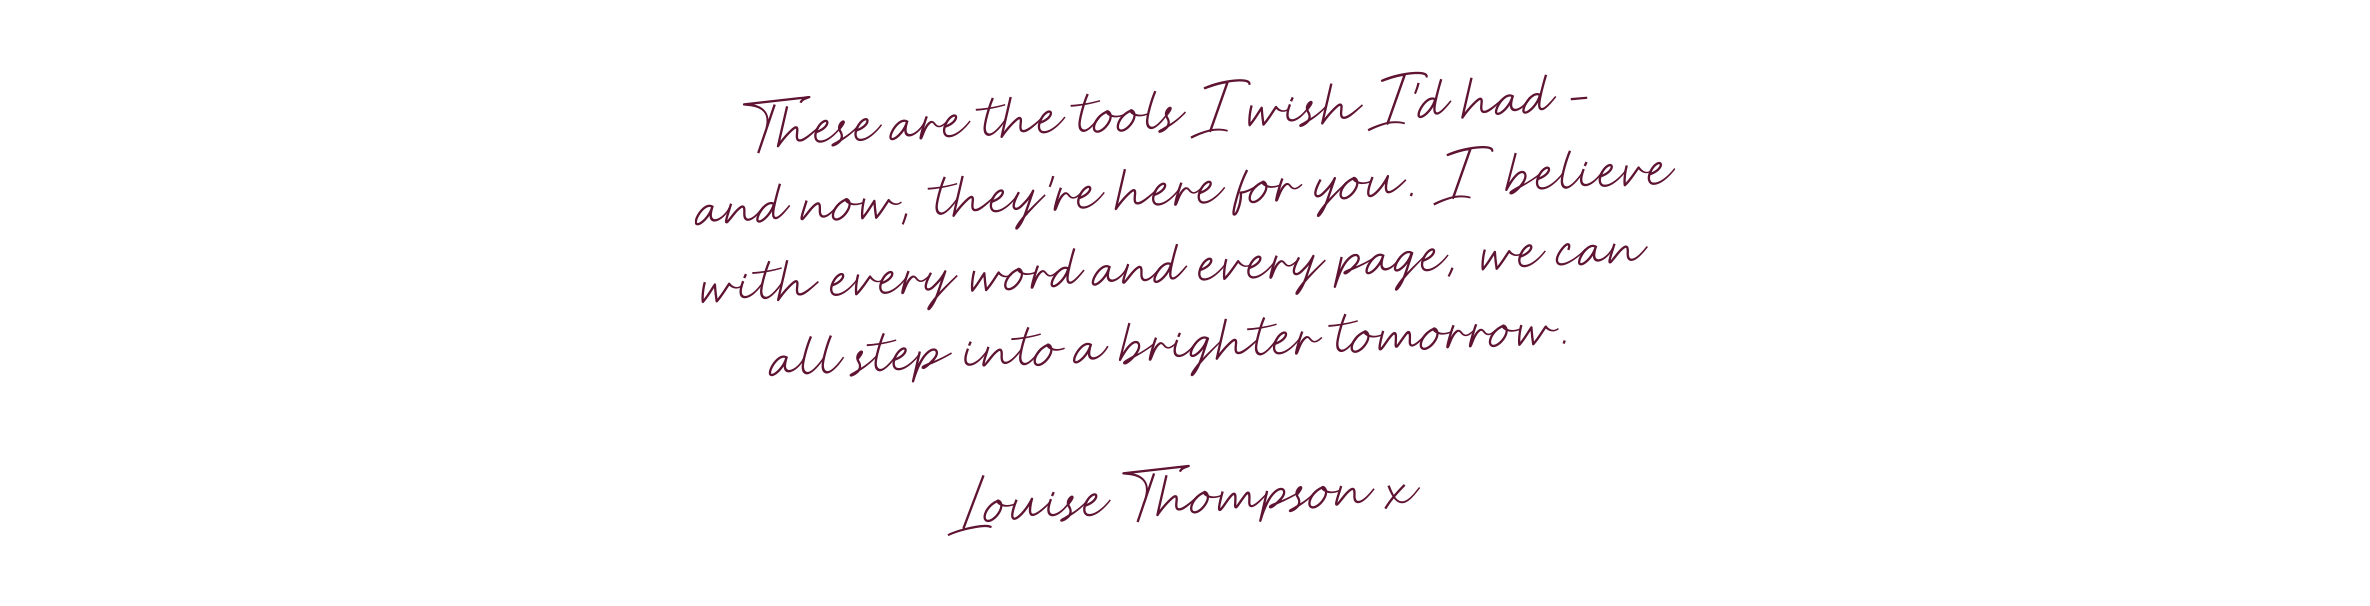 These are the tools I wish I'd had -
and now, they're here for you. I believe
with every word and every page, we can
all step into a brighter tomorrow.
Louise Thompson x